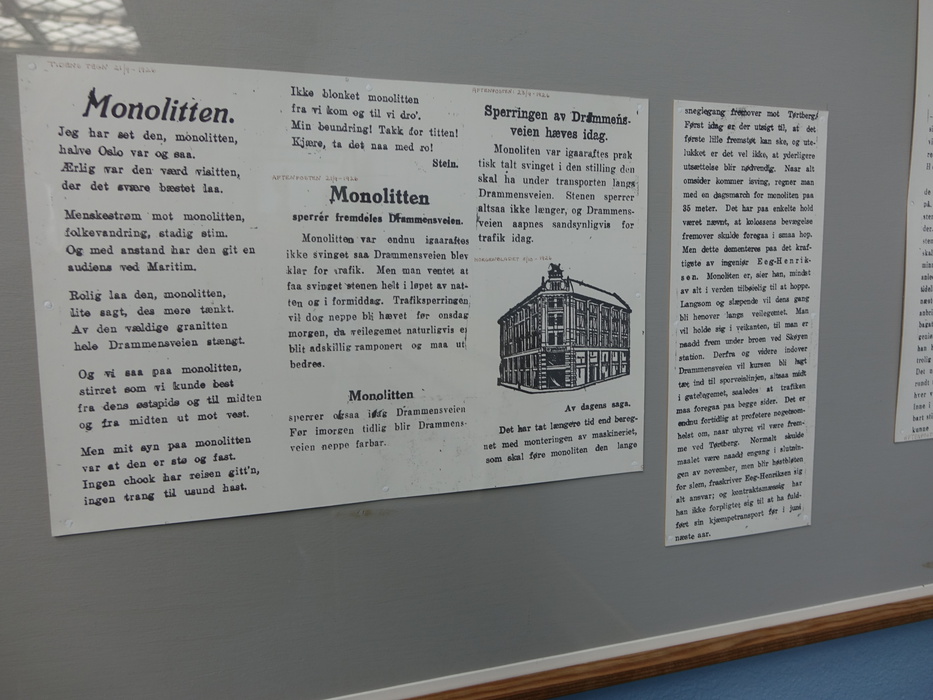 Monolitten.
Jeg har set den, monolitten,
halve Oslo var og saa.
Ærlig var den værd visitten,
der det svære bæstet laa.
Menskestrøm mot monolitten,
folkevandring, stadig stim.
Og med anstand har den git en
audiens ved Maritim.
Rolig laa den, monolitten,
lite sagt, des mere tænkt.
Av den vældige granitten
hele Drammensveien stængt.
Og vi saa paa monolitten,
stirret som vi kunde best
fra dens østspids og til midten
og fra midten ut mot vest.
Men mit syn paa monolitten
var at den er stø og fast.
Ingen chook har reisen gitt'n,
ingen trang til usund hast.
Ikke blonket monolitten
fra vi kom og til vi dro'.
Min beundring! Takk for titten!
Kjære, ta det naa med ro!
Stein.
AFTENPOSTEN
Monolitten
sperrér fremdeles Drammensveien.
Monolitten var endnu igaaraftes
ikke svinget saa Drammensveien blev
klar for trafik. Men man ventet at
faa svinget stenen helt i løpet av nat-
ten og i formiddag. Trafiksperringen
vil dog neppe bli hævet før onsdag
morgen, da veilegemet naturligvis er
blit adskillig ramponert og maa ut
bedres.
Monolitten
sperrer ogsaa idag Drammensveien
Før imorgen tidlig blir Drammens-
veien neppe farbar.
AFTENPOSTEN
Sperringen av Drammens-
veien hæves idag.
Monoliten var igaaraftes prak
tisk talt svinget i den stilling den
skal ha under transporten langs
Drammensveien. Stenen sperrer
altsaa ikke længer, og Drammens-
veien aapnes sandsynligvis for
trafik idag.
Av dagens saga.
Det har tat længere tid end bereg-
net med monteringen av maskineriet,
som skal føre monoliten den lange
sneglegang fremover mot Tørtberg.
Først idag er der utsigt til, at det
første lille fremstøt kan ske, og ute-
lukket er det vel ikke, at yderligere
utsættelse blir nødvendig. Naar alt
omsider kommer isving, regner man
med en dagsmarch for monoliten paa
35 meter. Det har paa enkelte hold
været nævnt, at kolossens bevægelse
fremover skulde foregaa i smaa hop.
Men dette dementeres paa det kraf-
tigste av ingeniør Eeg-Henrik-
sen. Monoliten er, sier han, mindst
av alt i verden tilbøielig til at hoppe.
Langsom og slæpende vil dens gang
bli henover langs veilegemet. Man
vil holde sig i veikanten, til man er
naadd frem under broen ved Skøyen
station. Derfra og videre indover
Drammensveien vil kursen bli lagt
tæt ind til sporveislinjen, altsaa midt
i gatelegemet, saaledes at trafiken
maa foregaa paa begge sider. Det er
endnu fortidlig at profetere nogetsom-
helst om, naar uhyret vil være frem-
me ved Tørtberg. Normalt skulde
maalet være naadd engang i slutnin-
gen av november, men blir høstbløten
for slem, fraskriver Eeg-Henriksen sig
alt ansvar; og kontraktsmæssig har
han ikke forpligtet sig til at ha fuld-
ført sin kjæmpetransport før i juni
næste aar.